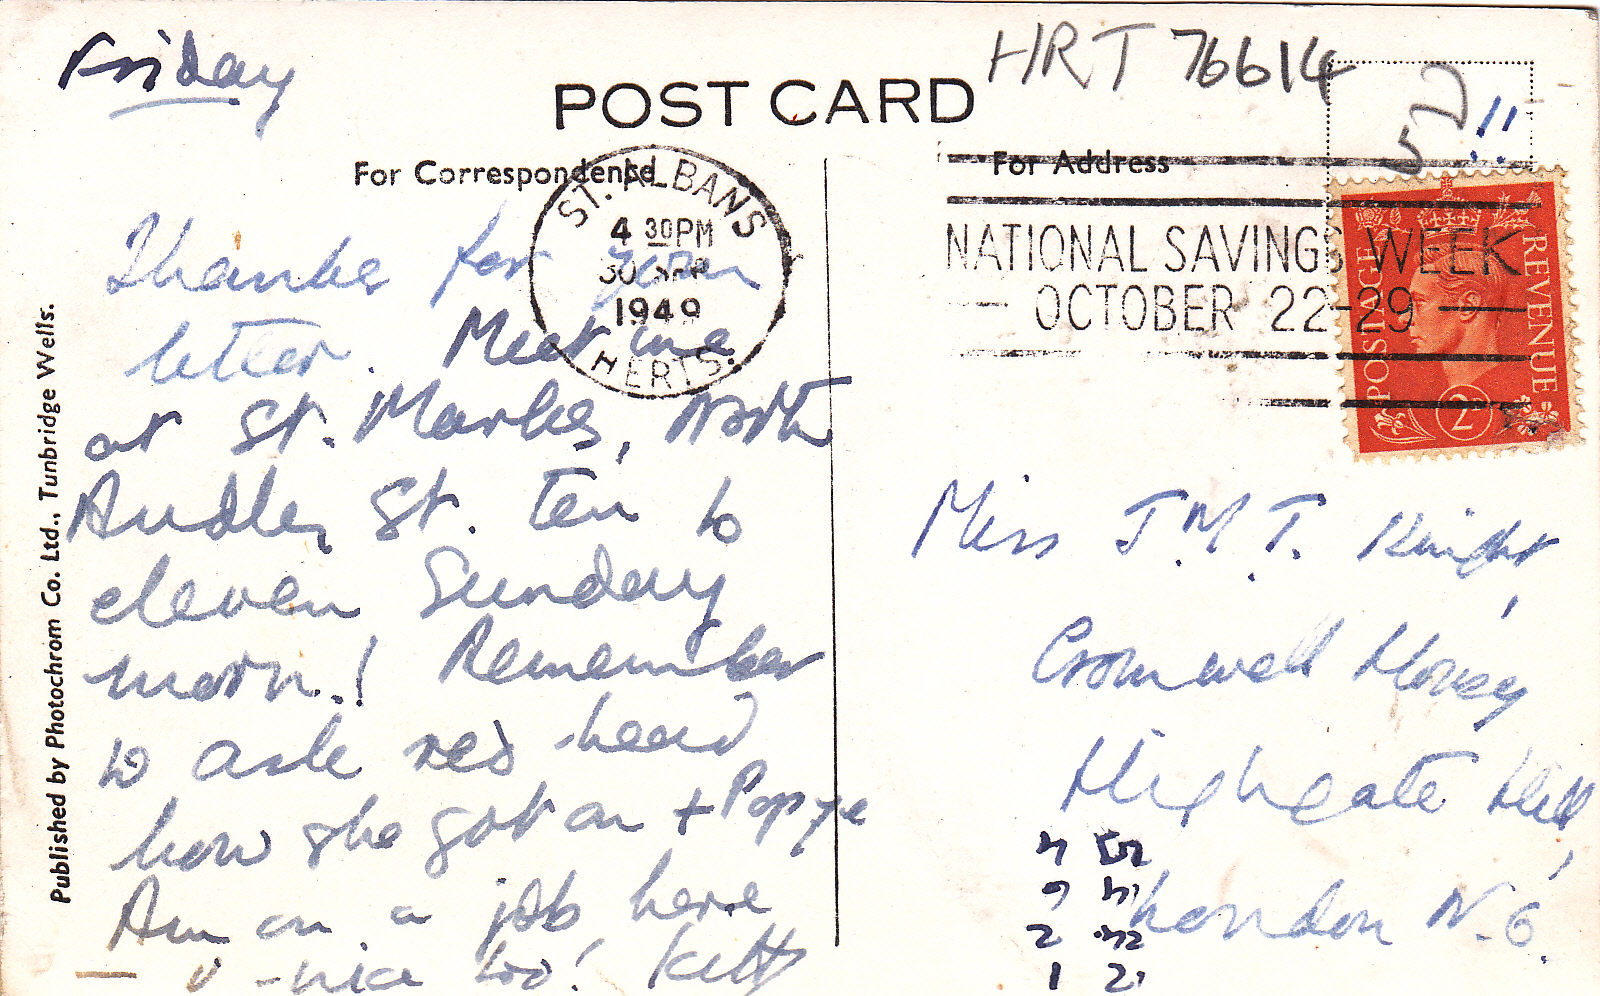 Friday
POST CARD
HRT 76614
For Correspondence
For Address
ST. ALBANS
4 30PM
30 SEP
1949
HERTS.
NATIONAL SAVINGS WEEK
OCTOBER 22-29
POSTAGE
REVENUE
2D
Published by Photochrom Co. Ltd., Tunbridge Wells.
Thanks for your
letter. Meet me
at St. Marks, North
Audley St. Ten to
eleven Sunday
morn.! Remember
to ask red-head
how she got on + Popye
Am on a job here
— v -nice too! Kitty
Miss J.M.T. Knight,
Cromwell House
Highgate Hill,
London N.6.